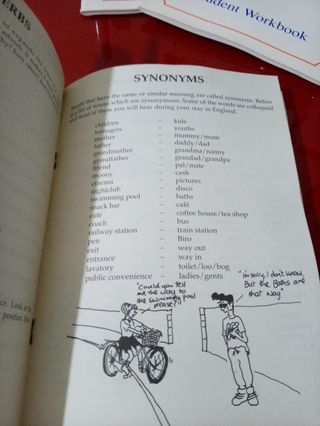 Student Workbook
ERBS
SYNONYMS
Words that have the same or similar meaning are called synonyms. Below
is a list of nouns which are synonymous. Some of the words are colloquial
and most of them you will hear during your stay in England.
children - kids
teenagers - youths
mother - mummy/mum
father - daddy/dad
grandmother - grandma/nanny
grandfather - grandad/grandpa
friend - pal/mate
money - cash
cinema - pictures
nightclub - disco
swimming pool - baths
snack bar - café
café - coffee house/tea shop
coach - bus
railway station - train station
pen - Biro
exit - way out
entrance - way in
lavatory - toilet/loo/bog
public convenience - ladies/gents
"Could you tell
me the way to
the swimming pool
please?"
"I'm sorry, I don't know,
But the Baths are
that way"
ce. Look at
position. Bu